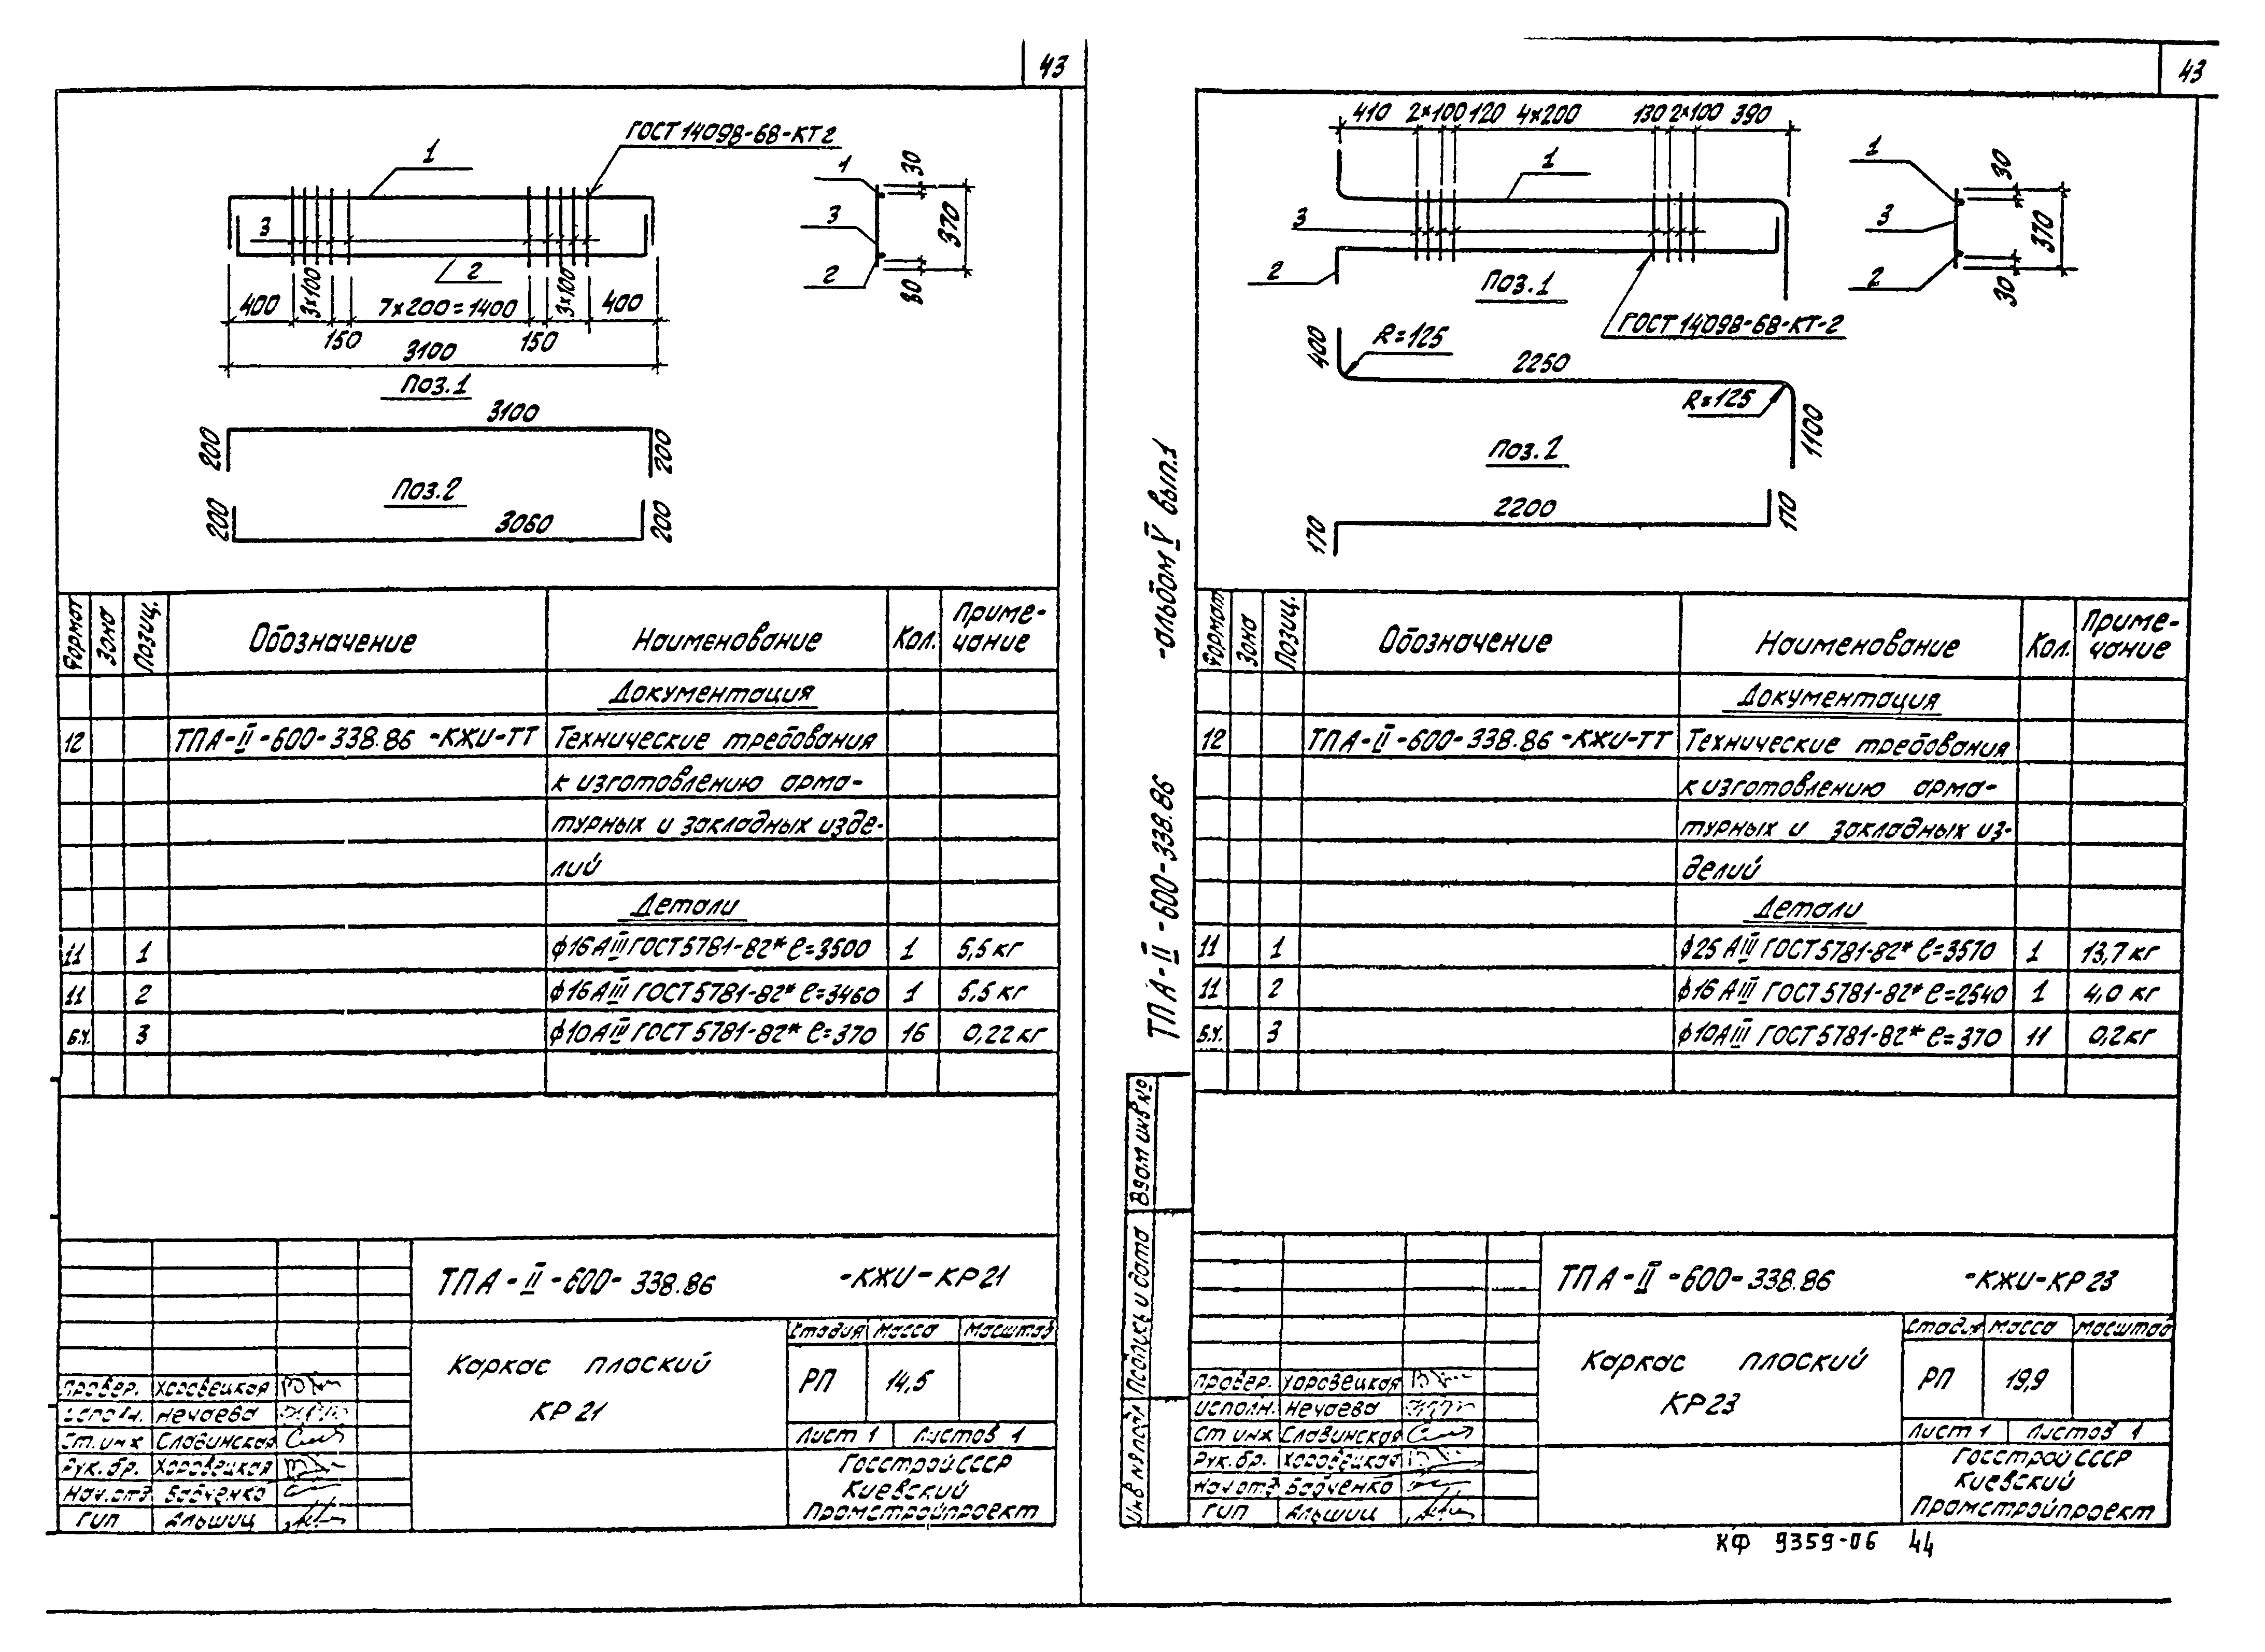 43
ГОСТ 14098-68-КТ2
1
3
2
400
3×100
7×200=1400
3×100
400
150
150
3100
1
3
2
30
370
30
Поз.1
3100
200
200
Поз.2
3060
200
200
Формат
Зона
Позиц.
Обозначение
Наименование
Кол.
Приме-
чание
Документация
12
ТПА-II-600-338.86 -КЖИ-ТТ
Технические требования
к изготовлению арма-
турных и закладных изде-
лий
Детали
11 1 ф16АIII ГОСТ 5781-82* ℓ=3500 1 5,5 кг
11 2 ф16АIII ГОСТ 5781-82* ℓ=3460 1 5,5 кг
Б.Ч. 3 ф10АIII ГОСТ 5781-82* ℓ=370 16 0,22 кг
ТПА-II-600-338.86 -КЖИ-КР21
Каркас плоский
КР21
Стадия Масса Масштаб
РП 14,5
Лист 1 Листов 1
Госстрой СССР
Киевский
Промстройпроект
Провер. Хоровецкая
Исполн. Нечаева
Ст.инж Славинская
Рук.бр. Хоровецкая
Нач.отд Бабченко
ГИП Альшиц
43
410 2×100 120 4×200 130 2×100 390
1
3
2
ГОСТ 14098-68-КТ-2
1
3
2
30
370
30
Поз.1
400
R=125
2250
R=125
1100
Поз.2
2200
170
170
ТПА-II-600-338.86 -альбом V вып.1
Формат
Зона
Позиц.
Обозначение
Наименование
Кол.
Приме-
чание
Документация
12
ТПА-II-600-338.86 -КЖИ-ТТ
Технические требования
к изготовлению арма-
турных и закладных из-
делий
Детали
11 1 ф25 АIII ГОСТ 5781-82* ℓ=3570 1 13,7 кг
11 2 ф16 АIII ГОСТ 5781-82* ℓ=2540 1 4,0 кг
Б.Ч. 3 ф10АIII ГОСТ 5781-82* ℓ=370 11 0,2 кг
Взам инв №
Подпись и дата
Инв № подл
ТПА-II-600-338.86 -КЖИ-КР23
Каркас плоский
КР23
Стадия Масса Масштаб
РП 19,9
Лист 1 Листов 1
Госстрой СССР
Киевский
Промстройпроект
Провер. Хоровецкая
Исполн. Нечаева
Ст инж Славинская
Рук.бр. Хоровецкая
Нач отд Бабченко
ГИП Альшиц
КФ 9359-06 44